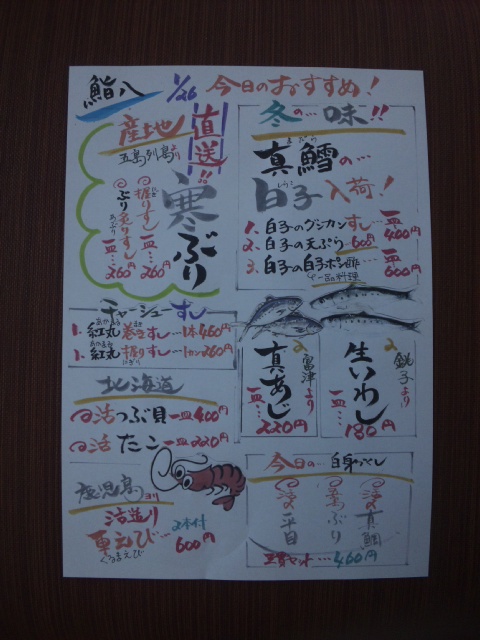 鮨八
1/26 今日のおすすめ!
産地直送!!
五島列島より
寒ぶり
握りすし 一皿…260円
ぶり炙りすし 一皿…260円
あぶり
冬の…味!!
まだら
真鱈の…
しらこ
白子入荷!
1、白子のグンカンすし 一皿…400円
2、白子の天ぷら 600円
3、白子の白子ポン酢 一皿…600円
一品料理
チャーシューすし
あかまる
1、紅丸巻きすし…1本460円
あかまる
1、紅丸握りすし…1カン260円
にぎり
北海道
活つぶ貝 一皿400円
活たこ 一皿220円
鹿児島より
活造り
車えび…2本付
くるまえび
600円
富津より
真あじ
一皿…220円
銚子より
生いわし
一皿…180円
今日の…白身づくし
活〆真鯛
五島ぶり
活〆平目
三貫セット…460円